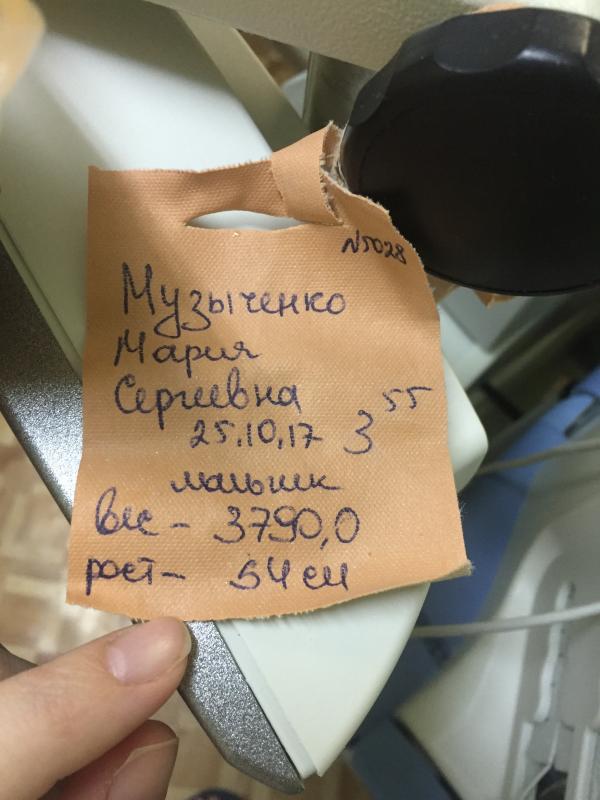 N5028
Музыченко
Мария
Сергеевна
25.10.17 3 55
мальчик
вес - 3790,0
рост - 54 см